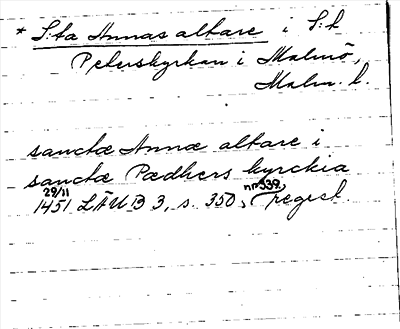 * S:ta Annas altare i S:t
Peterskyrkan i Malmö,
Malm. l.
sanctæ Annæ altare i
sanctæ Pædhers kyrckia
29/11 nr 339,
1451 LÄU B 3, s. 350, regest.